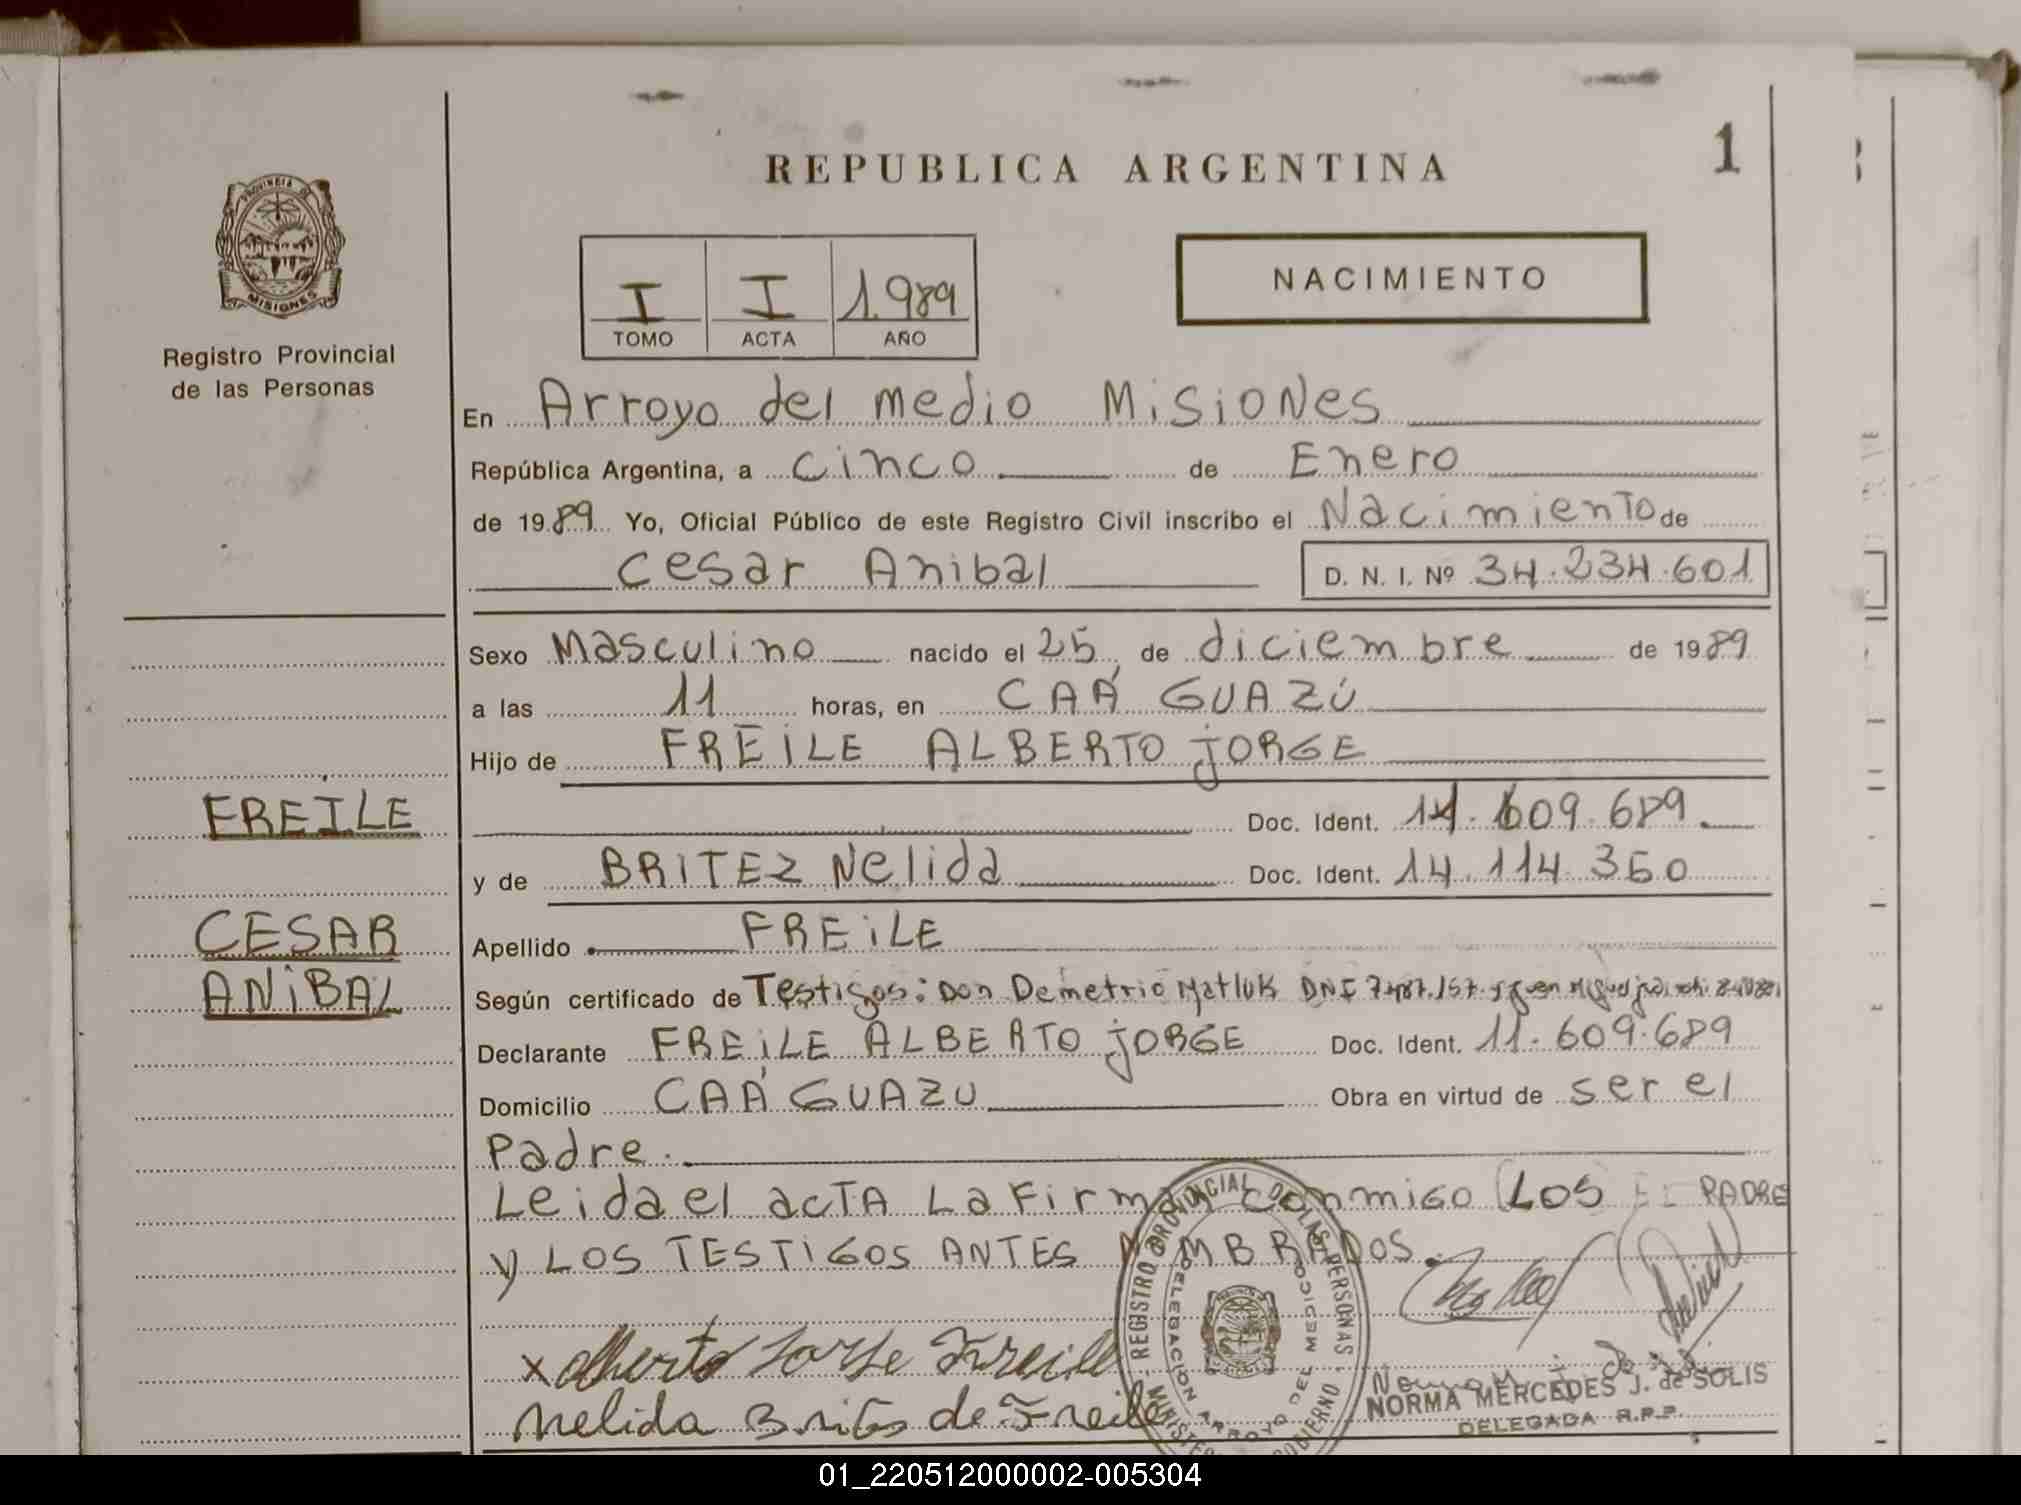 REPUBLICA ARGENTINA
1
PROVINCIA DE
MISIONES
Registro Provincial
de las Personas
I I 1.989
TOMO ACTA AÑO
NACIMIENTO
En Arroyo del medio MisioNes
República Argentina, a cinco de Enero
de 1989 Yo, Oficial Público de este Registro Civil inscribo el Nacimiento de
cesar Anibal D. N. I. Nº 34.234.601
Sexo Masculino nacido el 25 de diciembre de 1989
a las 11 horas, en CAÁ GUAZÚ
Hijo de FREILE ALBERTO JORGE
FREILE
Doc. Ident. 609.689
y de BRITEZ Nelida Doc. Ident. 14.114.350
CESAR
ANIBAL
Apellido FREILE
Según certificado de Testigos: Don Demetrio Matluk DNI
Declarante FREILE ALBERTO JORGE Doc. Ident. 11.609.689
Domicilio CAÁ GUAZU Obra en virtud de ser el
Padre.
Leida el acTA La Firma conmiGO (LOS EL PADRE
y LOS TESTIGOS ANTES NOMBRADOS.
REGISTRO PROVINCIAL DE LAS PERSONAS
DELEGACION ARROYO DEL MEDIO
x Alberto Jorge Freile
Nelida Brites de Freile
NORMA MERCEDES J. de SOLIS
DELEGADA R.P.P.
01_220512000002-005304